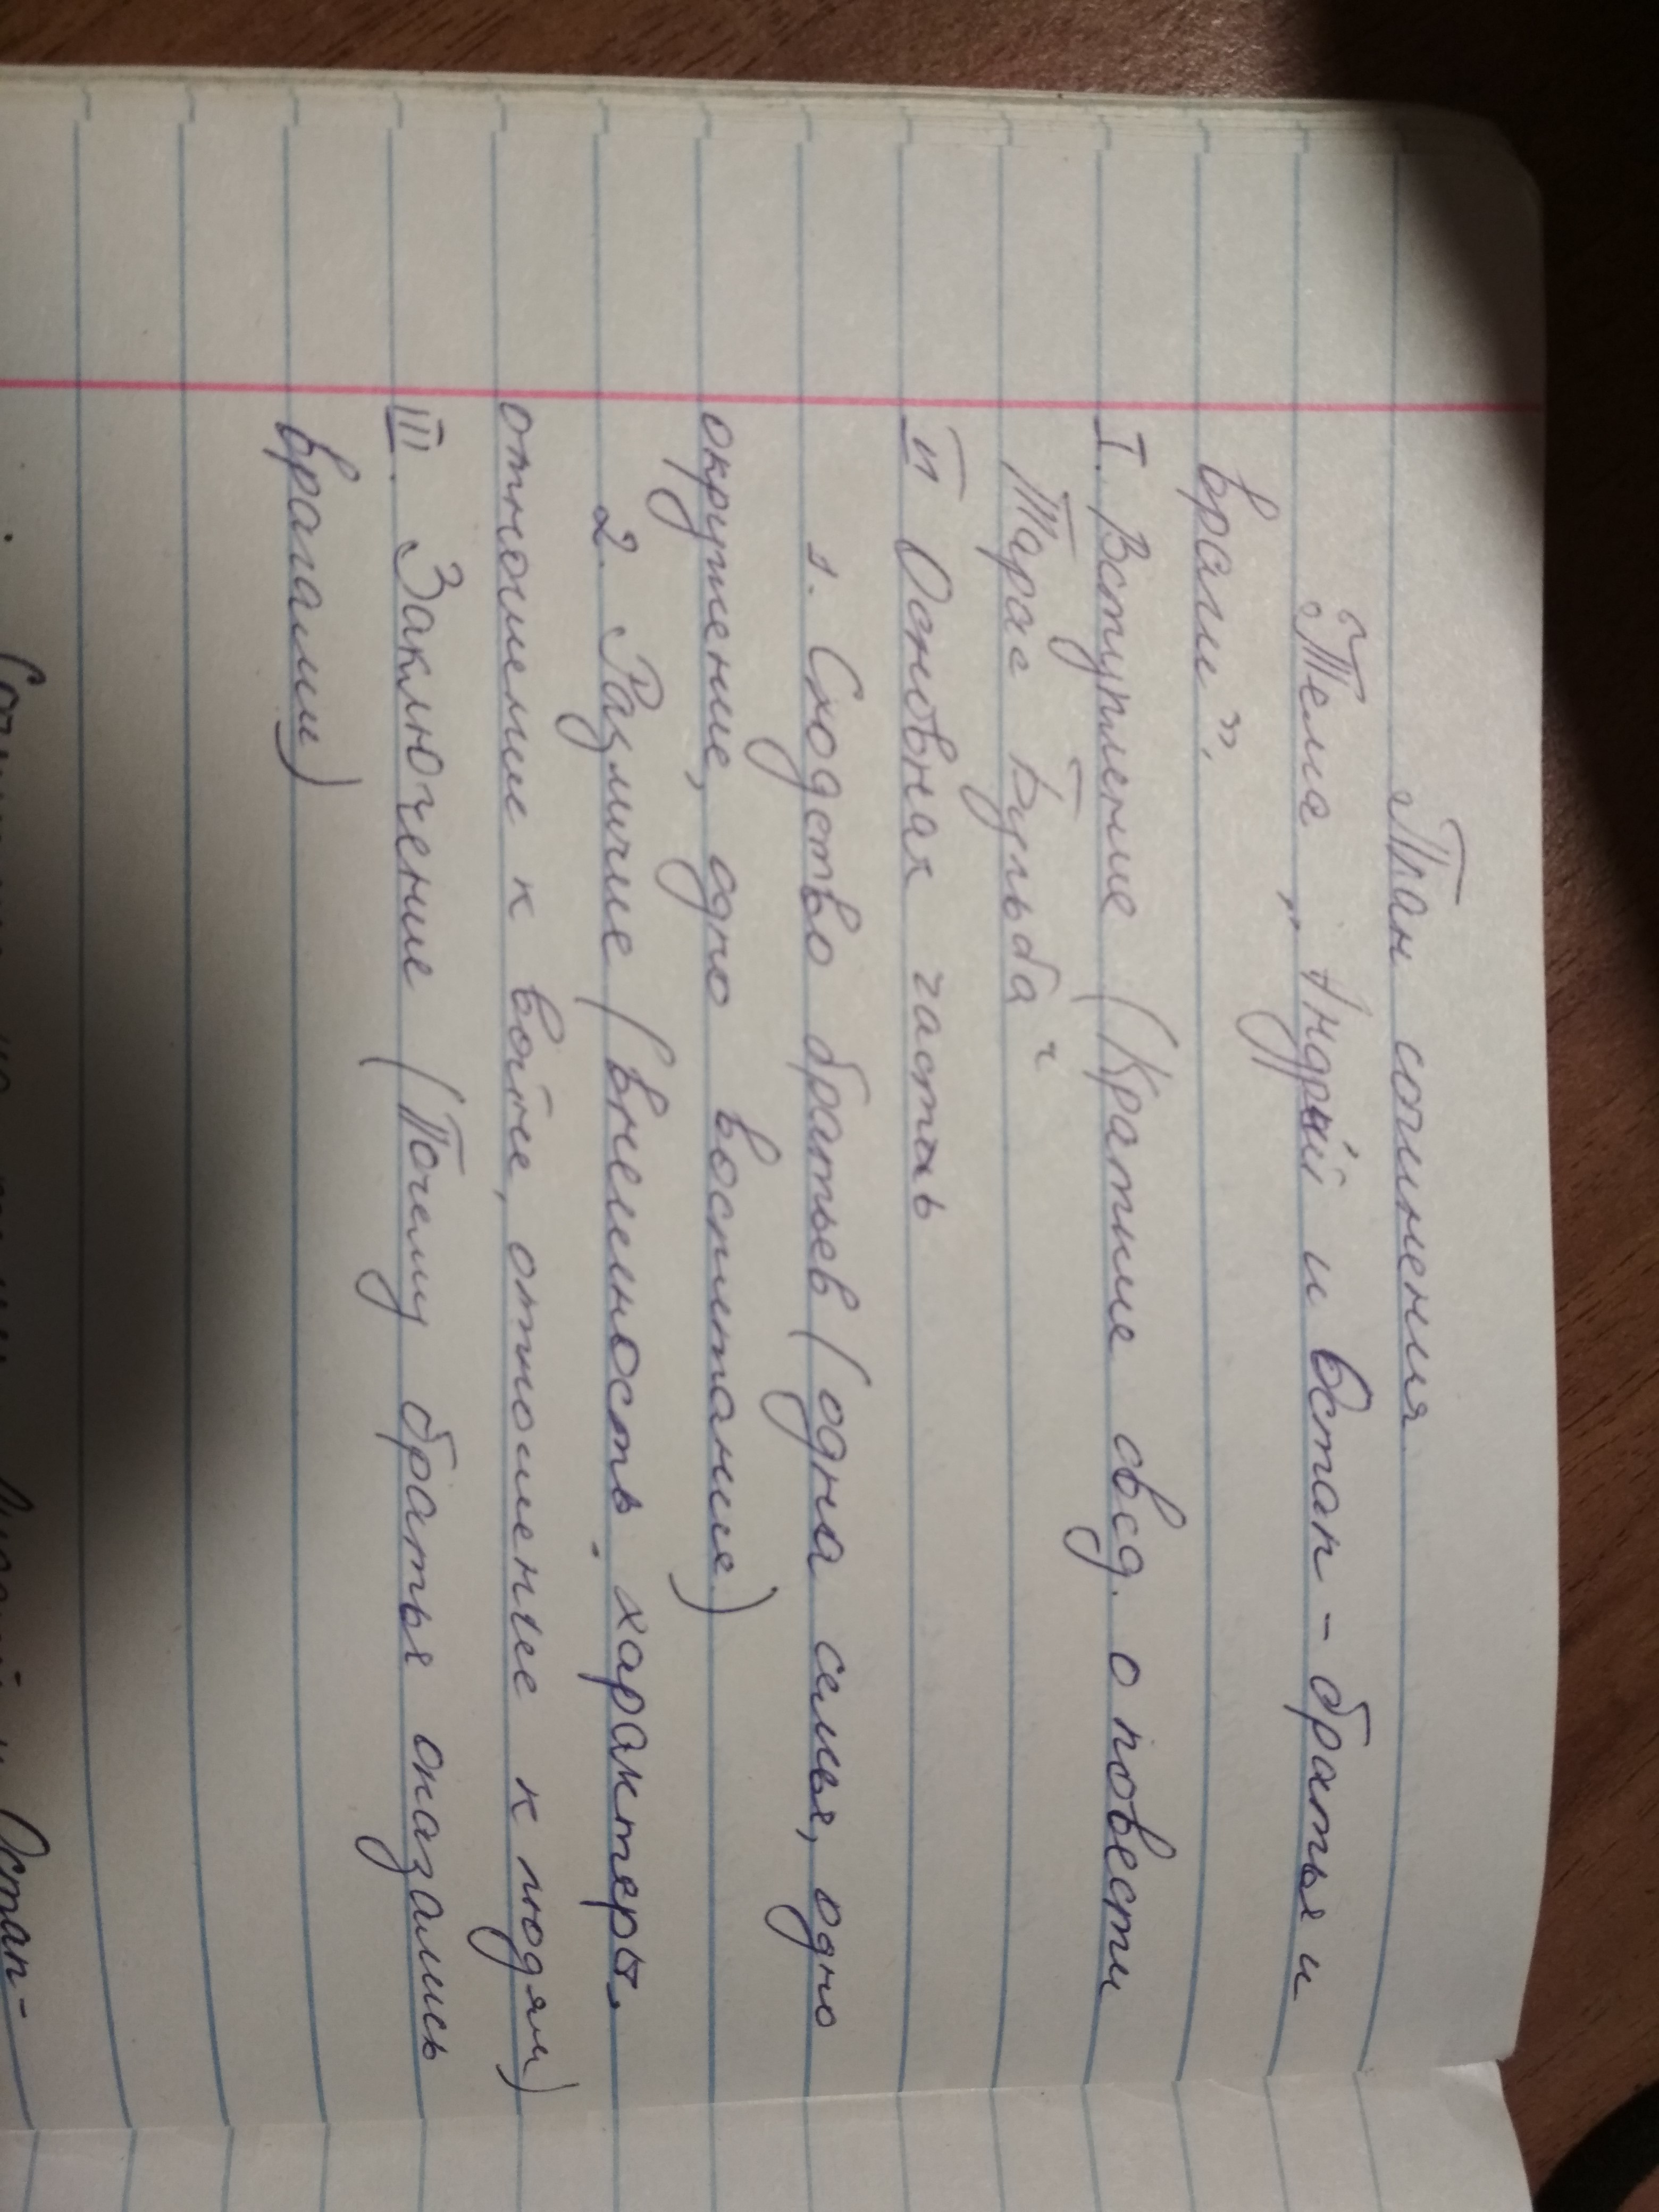 План сочинения
Тема „Андрий и Остап - братья и
враги”.
I. Вступление (Краткие свед. о повести
Тарас Бульба"
II Основная часть
1. Сходство братьев (одна семья, одно
окружение, одно воспитание)
2. Различие (внешность. характеры.
отношение к войне, отношение к людям)
III. Заключение (Почему братья оказались
врагами)
Остап-